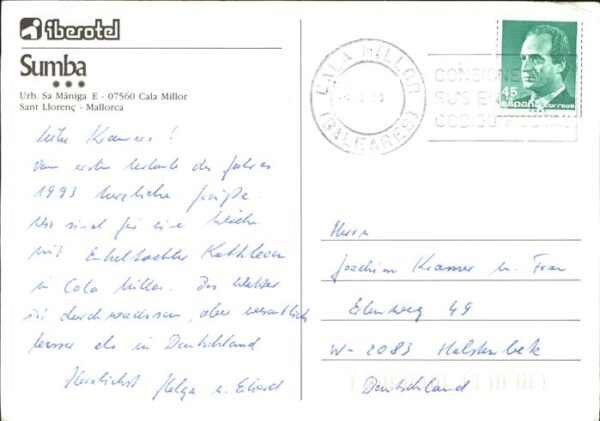 iberotel
Sumba
Urb. Sa Màniga E - 07560 Cala Millor
Sant Llorenç - Mallorca
Liebe Kramers!
Vom ersten Urlaub des Jahres
1993 herzliche Grüße.
Wir sind für eine Woche
mit Enkeltochter Kathleen
in Cala Millor. Das Wetter
ist durchwachsen, aber wesentlich
besser als in Deutschland
Herzlichst Helga u. Eckard
CALA MILLOR
(BALEARES)
CONSIGNE
SUS E
CODIGO POSTAL
45
españa correos
Herrn
Joachim Kramer u. Frau
Erlenweg 49
W-2083 Halstenbek
Deutschland